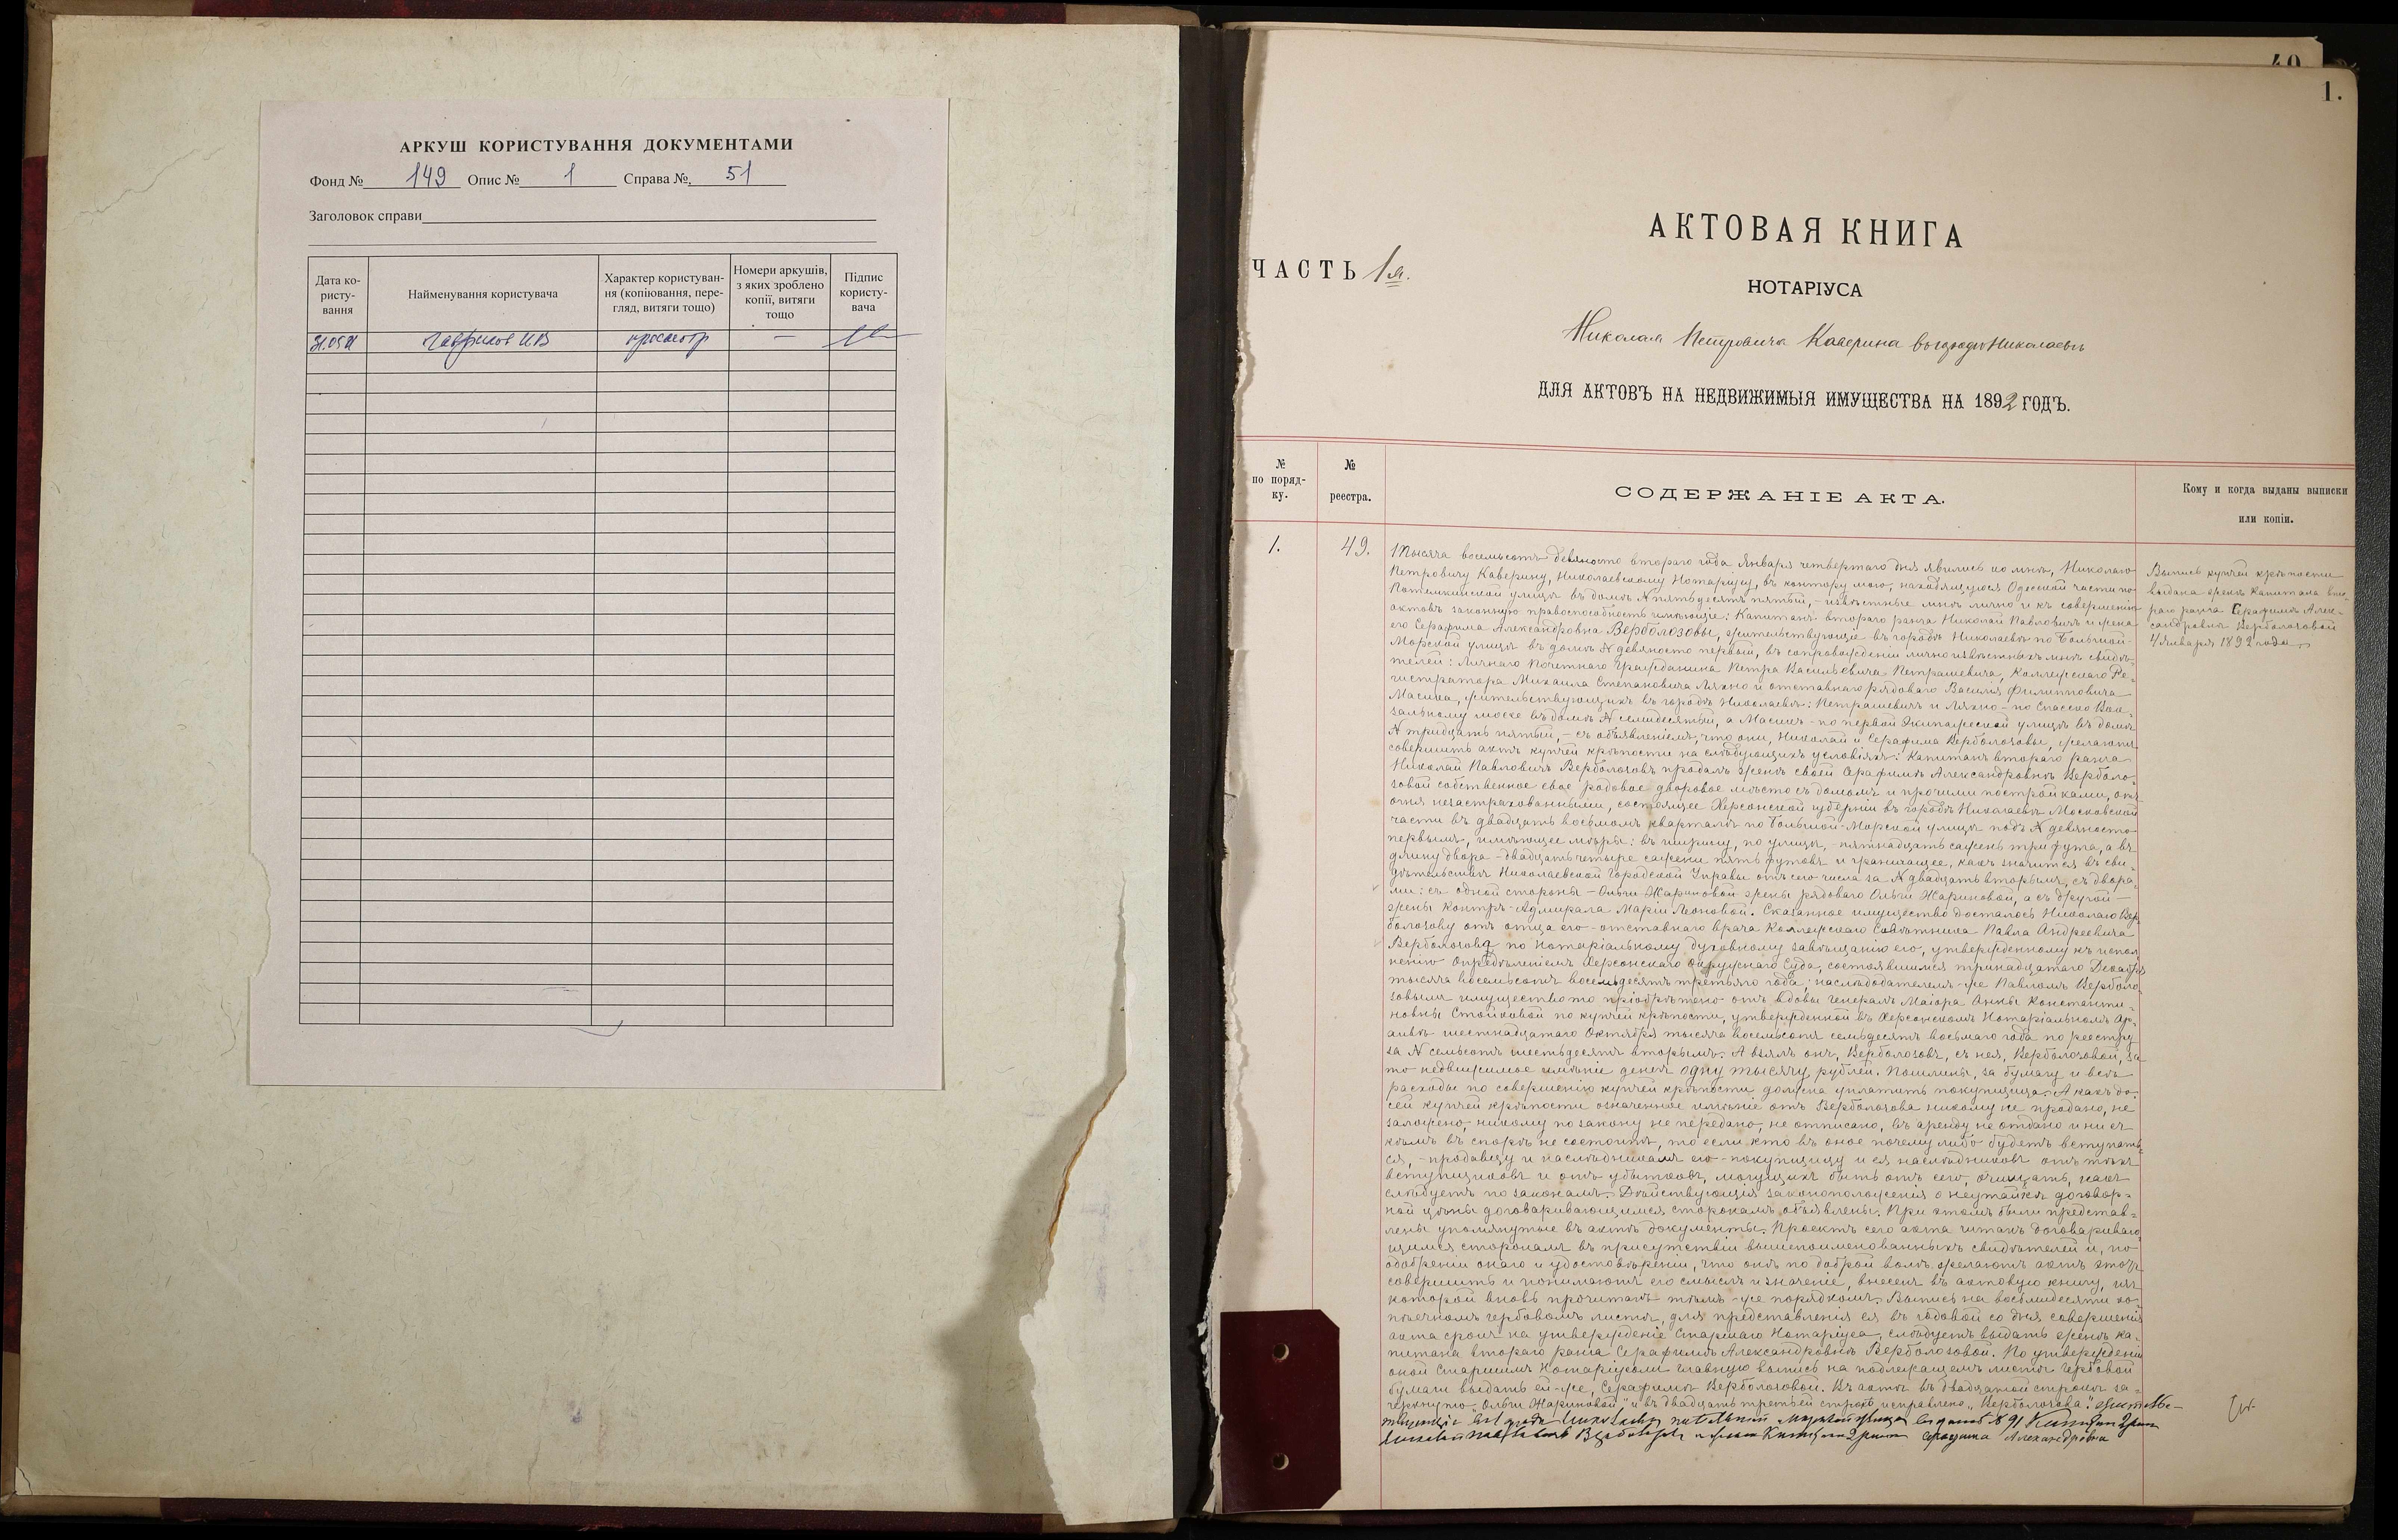 АРКУШ КОРИСТУВАННЯ ДОКУМЕНТАМИ
Фонд № 149 Опис № 1 Справа № 51
Заголовок справи
Дата ко-
ристу-
вання
Найменування користувача
Характер користуван-
ня (копіювання, пере-
гляд, витяги тощо)
Номери аркушів,
з яких зроблено
копії, витяги
тощо
Підпис
користу-
вача
просмотр —
40
1.
АКТОВАЯ КНИГА
ЧАСТЬ 1я.
НОТАРІУСА
Николая Петровича Каверина въ городѣ Николаевѣ
ДЛЯ АКТОВЪ НА НЕДВИЖИМЫЯ ИМУЩЕСТВА НА 1892 ГОДЪ.
№
по поряд-
ку.
№
реестра.
СОДЕРЖАНІЕ АКТА.
Кому и когда выданы выписки
или копіи.
1.
49.
Тысяча восемьсотъ девяносто втораго года Января четвертаго дня явились ко мнѣ, Николаю
Петровичу Каверину, Николаевскому Нотаріусу, въ контору мою, находящуюся Одесской части по
Потемкинской улицѣ въ домѣ № пятьдесятъ пятый, - извѣстные мнѣ лично и къ совершенію
актовъ законную правоспособность имѣющіе: Капитанъ втораго ранга Николай Павловичъ и жена
его Серафима Александровна Верболозовы, жительствующіе въ городѣ Николаевѣ по Большой-
Морской улицѣ въ домѣ № девяносто первый, въ сопровожденіи лично извѣстныхъ мнѣ свидѣ-
телей: Личнаго Почетнаго Гражданина Петра Васильевича Петрашевича, Коллежскаго Ре-
гистратора Михаила Степановича Ляхно и отставнаго рядоваго Василія Филипповича
Масика, жительствующихъ въ городѣ Николаевѣ: Петрашевичъ и Ляхно - по Спасско Вок-
зальному шоссе въ домѣ № семидесятый, а Масикъ - по первой Экипажеской улицѣ въ домѣ
№ тридцать пятый, - съ объявленіемъ, что они, Николай и Серафима Верболозовы, желаютъ
совершить актъ купчей крѣпости на слѣдующихъ условіяхъ: Капитанъ втораго ранга
Николай Павловичъ Верболозовъ продалъ женѣ своей Серафимѣ Александровнѣ Верболо-
зовой собственное свое родовое дворовое мѣсто съ домомъ и прочими постройками, отъ
огня незастрахованными, состоящее Херсонской губерніи въ городѣ Николаевѣ Московской
части въ двадцать восьмомъ кварталѣ по Большой-Морской улицѣ подъ № девяносто
первымъ, имѣющее мѣры: въ ширину, по улицѣ, - пятнадцать сажень три фута, а въ
длину двора - двадцать четыре сажени пять футовъ и граничащее, какъ значится въ сви-
дѣтельствѣ Николаевской Городской Управы отъ сего числа за № двадцать вторымъ, съ двора-
ми: съ одной стороны - Ольги Жариновой жены рядоваго Ольги Жариновой, а съ другой -
жены Контръ-Адмирала Маріи Леоновой. Сказанное имущество досталось Николаю Вер-
болозову отъ отца его - отставнаго врача Коллежскаго Совѣтника Павла Андреевича
Верболозова по нотаріальному духовному завѣщанію его, утвержденному къ испол-
ненію опредѣленіемъ Херсонскаго Окружнаго Суда, состоявшимся тринадцатаго Декабря
тысяча восемьсотъ восемьдесятъ третьяго года; наслѣдодателемъ-же Павломъ Верболо-
зовымъ имущество то пріобрѣтено отъ вдовы Генералъ Маіора Анны Константи-
новны Стойковой по купчей крѣпости, утвержденной въ Херсонскомъ Нотаріальномъ Ар-
хивѣ шестнадцатаго Октября тысяча восемьсотъ семьдесятъ восьмаго года по реестру
за № семьсотъ шестьдесятъ вторымъ. А взялъ онъ, Верболозовъ, съ нея, Верболозовой, за
то недвижимое имѣніе денегъ одну тысячу рублей. Пошлины, за бумагу и всѣ
расходы по совершенію купчей крѣпости должна уплатить покупщица. А какъ до
сей купчей крѣпости означенное имѣніе отъ Верболозова никому не продано, не
заложено, никому по закону не передано, не отписано, въ аренду не отдано и ни съ
кѣмъ въ спорѣ не состоитъ, то если кто въ оное почему либо будетъ вступать-
ся, - продавцу и наслѣдникамъ его - покупщицу и ея наслѣдниковъ отъ тѣхъ
вступщиковъ и отъ убытковъ, могущихъ быть отъ сего, очищать, какъ
слѣдуетъ по законамъ. Дѣйствующія законоположенія о неутайкѣ договор-
ной цѣны договаривающимся сторонамъ объявлены. При этомъ были представ-
лены упомянутые въ актѣ документы. Проектъ сего акта читанъ договариваю-
щимся сторонамъ въ присутствіи вышепоименованныхъ свидѣтелей и, по
одобреніи онаго и удостовѣреніи, что онѣ по доброй волѣ желаютъ актъ этотъ
совершить и понимаютъ его смыслъ и значеніе, внесенъ въ актовую книгу, изъ
которой вновь прочитанъ тѣмъ-же порядкомъ. Выпись на восьмидесяти ко-
пѣечномъ гербовомъ листѣ, для представленія ея въ годовой со дня совершенія
акта срокъ на утвержденіе Старшаго Нотаріуса, слѣдуетъ выдать женѣ ка-
питана втораго ранга Серафимѣ Александровнѣ Верболозовой. По утвержденіи
оной Старшимъ Нотаріусомъ главную выпись на надлежащемъ листѣ гербовой
бумаги выдать ей-же, Серафимѣ Верболозовой. Въ актѣ въ двадцатой строкѣ за-
черкнуто „Ольги Жариновой" и въ двадцать третьей строкѣ исправлено „Верболозова". Жительс-
твующіе въ городѣ Николаевѣ по Большой Морской улицѣ въ домѣ № 91 Капитанъ 2 ранга
Николай Павловичъ Верболозовъ и жена Капитана 2 ранга Серафима Александровна
Выпись купчей крѣпости
выдана женѣ Капитана вто-
раго ранга Серафимѣ Алек-
сандровнѣ Верболозовой
4 Января 1892 года